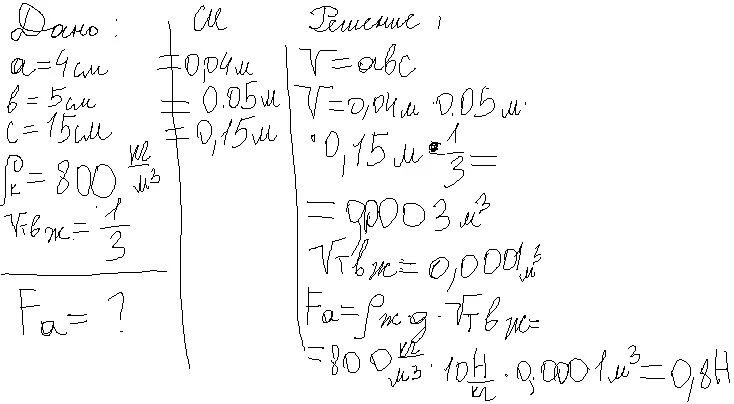 Дано:
a=4см
в=5см
с=15см
ρк=800 кг/м³
Vт в ж.=1/3
Fа=?
СИ
=0,04м
=0.05м
=0,15м
Решение:
V=aвс
V=0,04м·0.05м·
·0,15м·1/3=
=0,0003м³
Vт в ж=0,0001м³
Fа=ρж·g·Vт в ж=
=800кг/м³·10Н/кг·0,0001м³=0,8Н